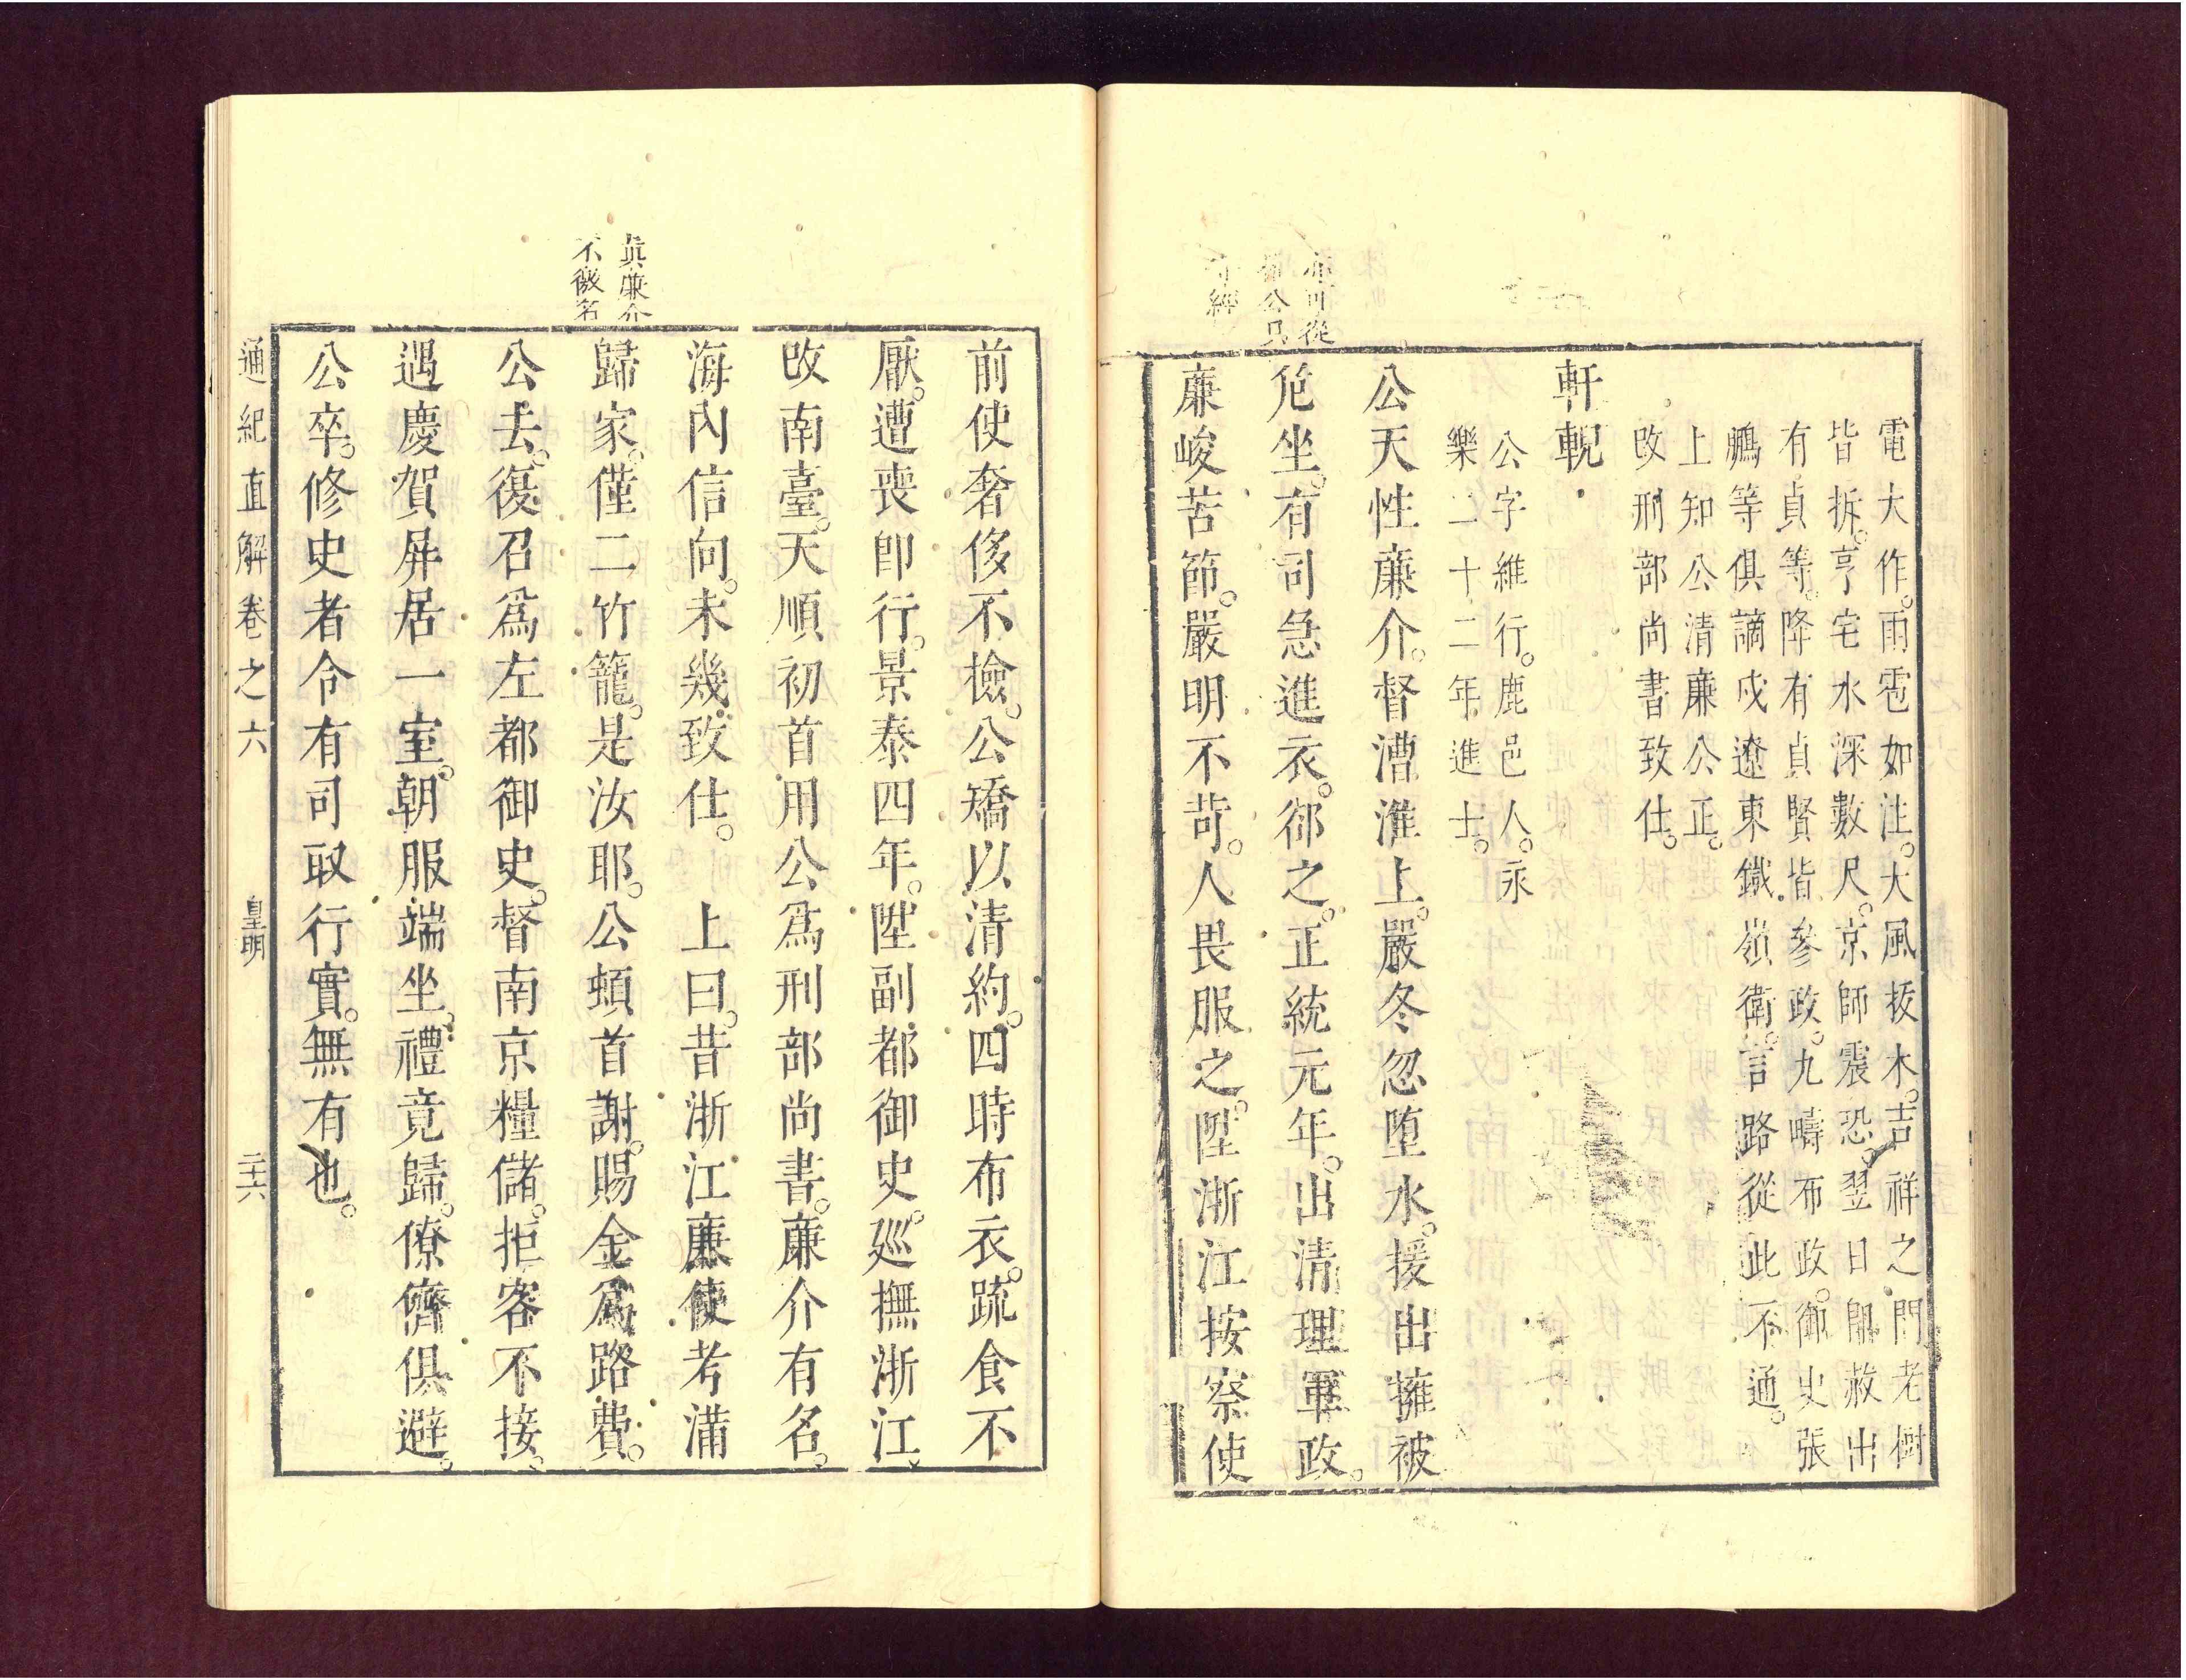 電大作。雨雹如注。大風拔木。吉祥之門老樹
皆拆。亨宅水深數尺。京師震恐。翌日卽赦出
有貞等。降有貞賢皆參政。九疇布政。御史張
鵬等俱謫戍遼東鐵嶺衛。言路從此不通。
上知公清廉公正。
改刑部尚書致仕。
軒輗
公字維行。鹿邑人。永
樂二十二年進士。
公天性廉介。督漕淮上。嚴冬忽墮水。援出擁被
危坐。有司急進衣。却之。正統元年。出清理軍政。
廉峻苦節。嚴明不苛。人畏服之。陞浙江按察使
公只
經
前使奢侈不撿。公矯以清約。四時布衣。疏食不
厭。遭喪卽行。景泰四年。陞副都御史。廵撫浙江。
改南臺。天順初首用公爲刑部尚書。廉介有名。
海內信向。未幾致仕。上曰。昔浙江廉使考滿
歸家。僅二竹籠。是汝耶。公頓首謝。賜金爲路費。
公去。復召爲左都御史。督南京糧儲。拒客不接。
遇慶賀屛居一室。朝服端坐。禮竟歸。僚儕俱避。
公卒。修史者令有司取行實。無有也。
眞廉介
不徼名
通紀直解卷之六 皇明 二十六